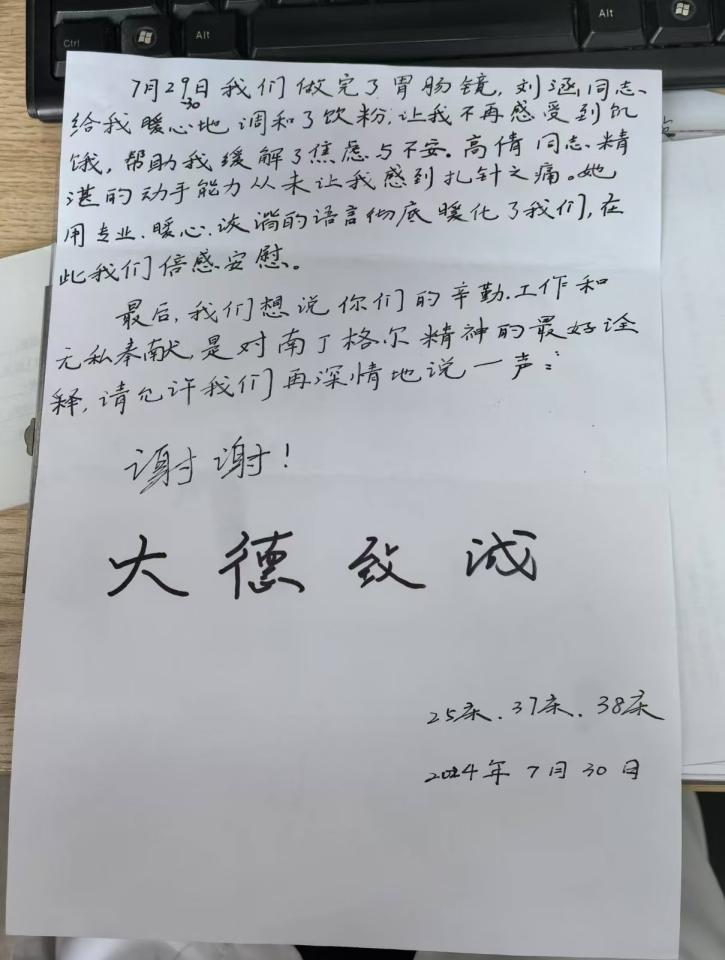 Ctrl
Alt
Alt
7月29日我们做完了胃肠镜,刘涵同志、
-30
给我暖心地调和了饮粉,让我不再感受到饥
饿,帮助我缓解了焦虑与不安。高倩同志精
湛的动手能力从未让我感到扎针之痛。她
用专业、暖心、诙谐的语言彻底暖化了我们,在
此我们倍感安慰。
最后,我们想说你们的辛勤工作和
无私奉献,是对南丁格尔精神的最好诠
释,请允许我们再深情地说一声:
谢谢!
大德致诚
25床、37床、38床
2024年7月30日